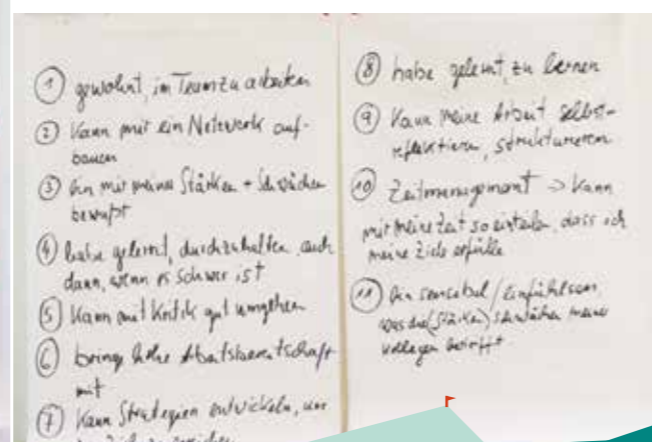 ① gewohnt, im Team zu arbeiten
② Kann mir ein Netzwerk auf-
bauen
③ bin mir meiner Stärken + Schwächen
bewußt
④ habe gelernt, durchzuhalten, auch
dann, wenn es schwer ist
⑤ Kann mit Kritik gut umgehen
⑥ bringe hohe Arbeitsbereitschaft
mit
⑦ Kann Strategien entwickeln, um
⑧ habe gelernt, zu lernen
⑨ Kann meine Arbeit selbst-
reflektieren, strukturieren
⑩ Zeitmanagement -> Kann
mir meine Zeit so einteilen, dass ich
meine Ziele erfülle
⑪ bin sensibel / einfühlsam,
was die (Stärken) Schwächen meiner
Kollegen betrifft